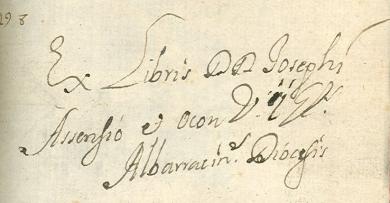 298
Ex Libris DD Josephi
Assensio et Ocon V.
Albarracin.s Diocesis